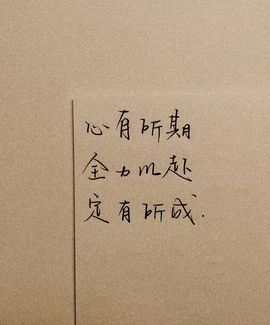 心有所期
全力以赴
定有所成.